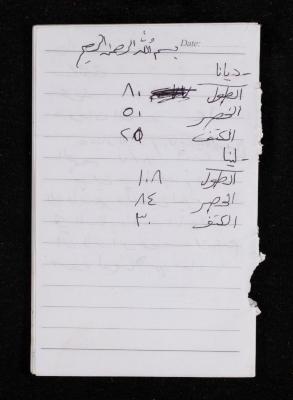 Date:
بسم الله الرحمن الرحيم
- ديانا
الطول ٨٠
الخصر ٥٠
الكتف ٢٥
- لينا
الطول ١٠٨
الخصر ٨٤
الكتف ٣٠